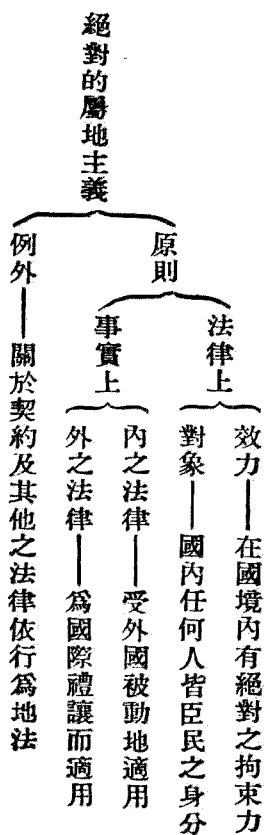 絕對的屬地主義
原則
法律上
效力——在國境內有絕對之拘束力
對象——國內任何人皆臣民之身分
事實上
內之法律——受外國被動地適用
外之法律——爲國際禮讓而適用
例外——關於契約及其他之法律依行爲地法